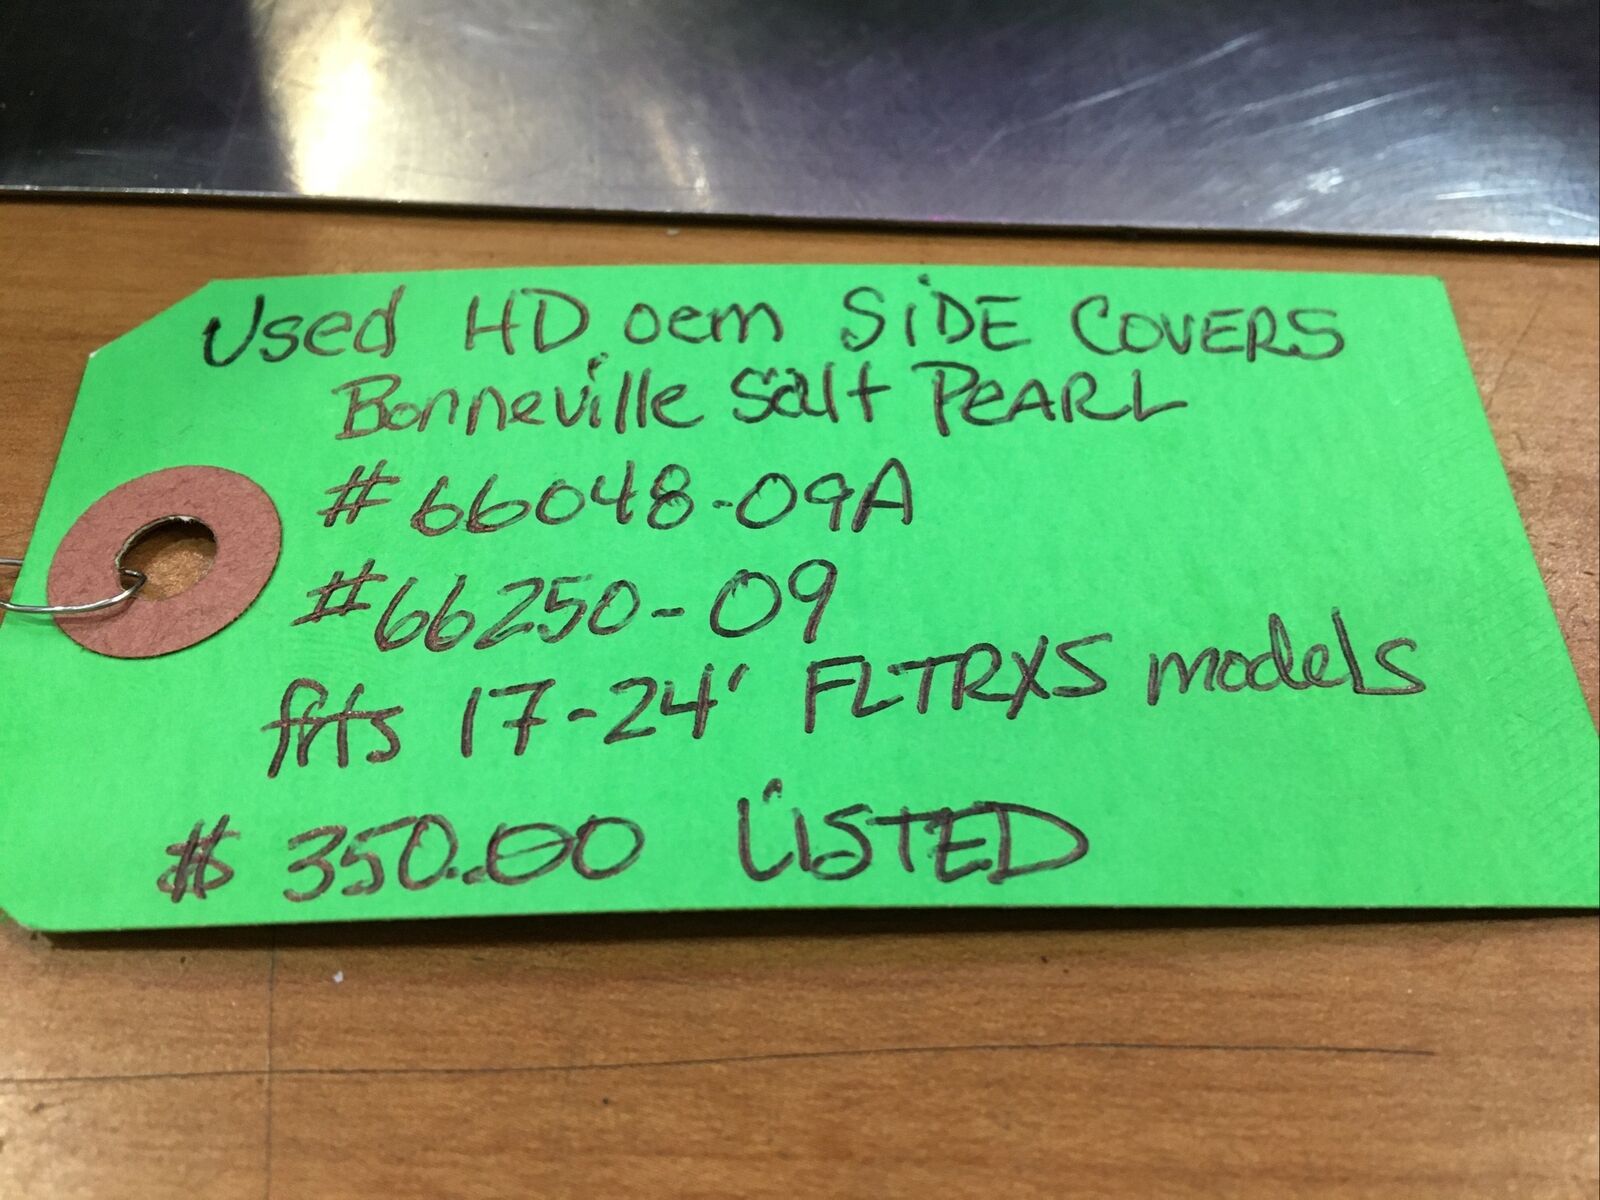 Used HD oem SiDE COVERS
Bonneville Salt PEARL
# 66048-09A
#66250-09
fits 17-24' FLTRXS models
$ 350.00 LiSTED